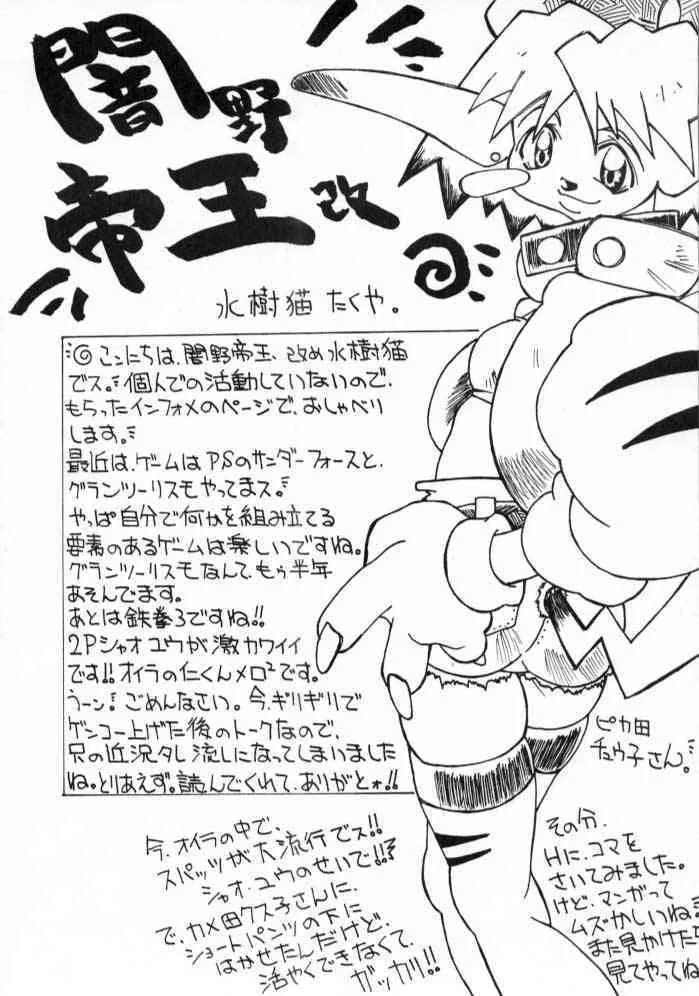 闇野
帝王改
水樹猫 たくや。
◎こんにちは、闇野帝王、改め水樹猫
でス。個人での活動していないので、
もらったインフォメのページで、おしゃべり
します。
最近は、ゲームはPSのサンダーフォースと、
グランツーリスモやってまス。
やっぱ自分で何かを組み立てる
要素のあるゲームは楽しいですね。
グランツーリスモなんて、もぅ半年
あそんでます。
あとは鉄拳3ですね!!
2Pシャオユウが激カワイイ
です!!オイラの仁くんメロ²です。
うーン!ごめんなさい。今、ギリギリで
ゲンコー上げた後のトークなので、
只の近況タレ流しになってしまいました
ね。とりあえず。読んでくれて、ありがとォ!!
ピカ田
チュウ子さん。
今、オイラの中で、
スパッツが大流行でス!!
シャオ・ユウのせいで!!
で、カメ田クス子さんに、
ショートパンツの下に
はかせたんだけど、
活やくできなくて、
ガッカリ!!
その分、
Hに、コマを
さいてみました。
けど、マンガって
ムズかしいね。
また見かけたら
見てやってね